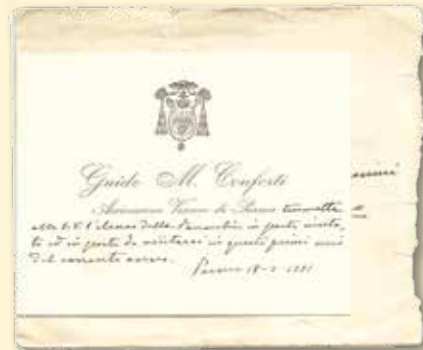 Guido M. Conforti
Arcivescovo Vescovo di Parma trasmette
alla S.V. l'elenco delle Parrocchie in parte visita-
te ed in parte da visitarsi in questi primi mesi
del corrente anno.
Parma 18-2-1921